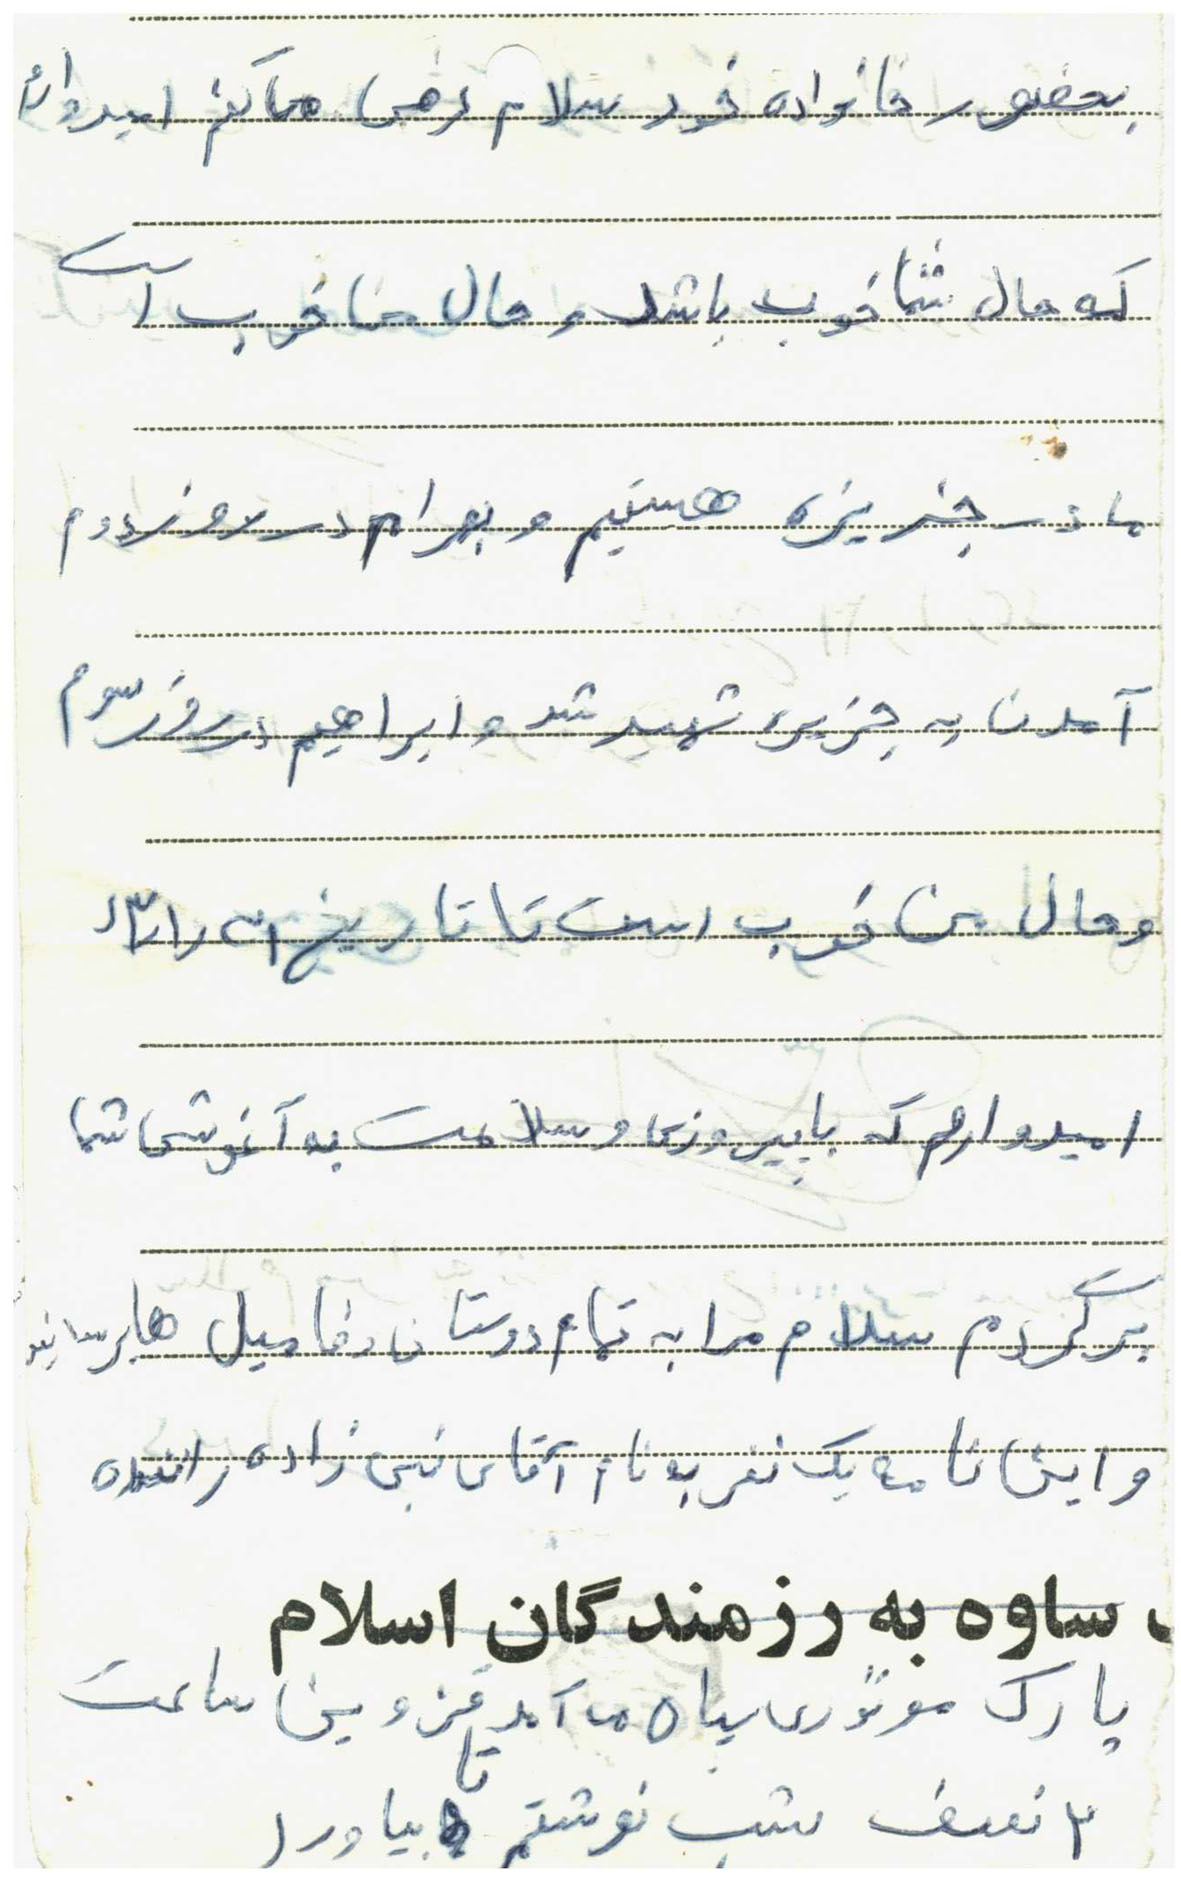 بحضور خانواده خود سلام عرض می کنم امیدوارم
که حال شما خوب باشد و حال من خوب است
ما در جزیزه هستیم و بهرام در روز دوم
آمدن به جزیره شهید شد و ابراهیم در روز سوم
و حال من خوب است تا تاریخ
امیدوارم که با پیروزی و سلامت به آغوش شما
برگردم سلام مرا به تمام دوستان و فامیل ها برسانید
و این نامه یک نفر به نام آقای نبی زاده راننده
ساوه به رزمندگان اسلام
پارک موتوری سپاه می آمد قزوین ساعت
۲ نصف شب نوشتم تا بیاورد